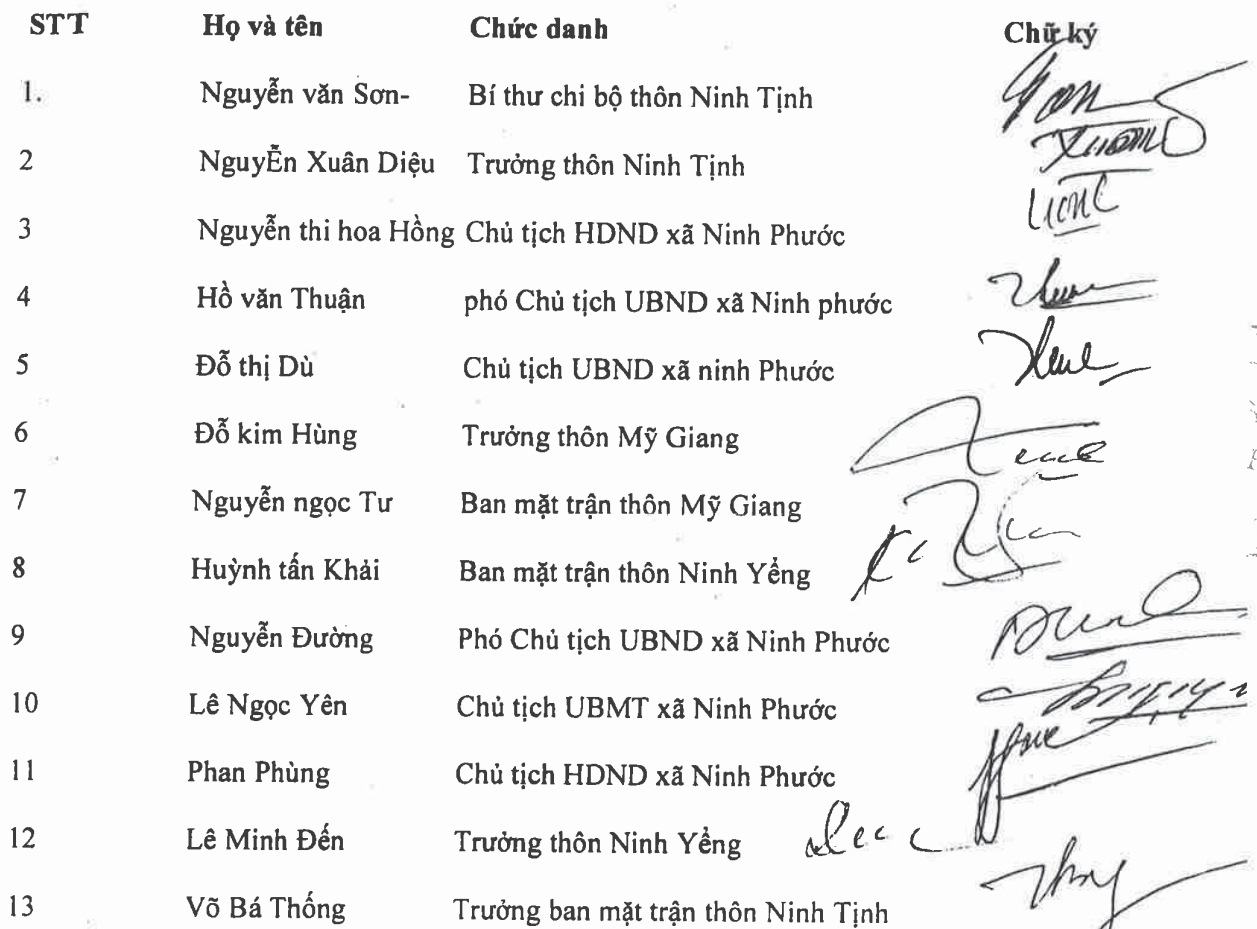 STT Họ và tên Chức danh Chữ ký
1. Nguyễn văn Sơn- Bí thư chi bộ thôn Ninh Tịnh
2 NguyỄn Xuân Diệu Trưởng thôn Ninh Tịnh
3 Nguyễn thi hoa Hồng Chủ tịch HDND xã Ninh Phước
4 Hồ văn Thuận phó Chủ tịch UBND xã Ninh phước
5 Đỗ thị Dù Chủ tịch UBND xã ninh Phước
6 Đỗ kim Hùng Trưởng thôn Mỹ Giang
7 Nguyễn ngọc Tư Ban mặt trận thôn Mỹ Giang
8 Huỳnh tấn Khải Ban mặt trận thôn Ninh Yểng
9 Nguyễn Đường Phó Chủ tịch UBND xã Ninh Phước
10 Lê Ngọc Yên Chủ tịch UBMT xã Ninh Phước
11 Phan Phùng Chủ tịch HDND xã Ninh Phước
12 Lê Minh Đến Trưởng thôn Ninh Yểng
13 Võ Bá Thống Trưởng ban mặt trận thôn Ninh Tịnh